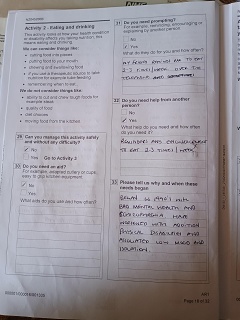 Activity 2 - Eating and drinking
This activity looks at how your health condition
or disability affects you eating nutrition, this
means eating and drinking.
We can consider things like:
• cutting food into pieces
• putting food to your mouth
• chewing and swallowing food
• if you use a therapeutic source to take
nutrition for example tube-feeding
• remembering when to eat
We do not consider things like:
• ability to cut and chew tough foods for
example steak
• quality of food
• diet choices
• moving food from the cooker
29. Can you manage this activity safely
and without any difficulty?
✓ No
Yes Go to Activity 3
30. Do you need an aid?
For example, adapted cutlery or cups,
easy to grip kitchen equipment
No
Yes
What aids do you use and how often?
31. Do you need prompting?
For example, reminding, encouraging or
explaining by another person
No
✓ Yes
What do they do for you and how often?
2-3 times/week
32. Do you need help from another
person?
No
✓ Yes
What help do you need and how often
do you need it?
REMINDERS AND ENCOURAGEMENT
TO EAT 2-3 TIMES/WEEK
33. Please tell us why and when these
needs began
BEGAN IN 1990'S WITH
BAD MENTAL HEALTH AND
HAVE
WORSENED WITH ADDITION
PHYSICAL DISABILITIES AND
LOW MOOD AND
ISOLATION.
AR1